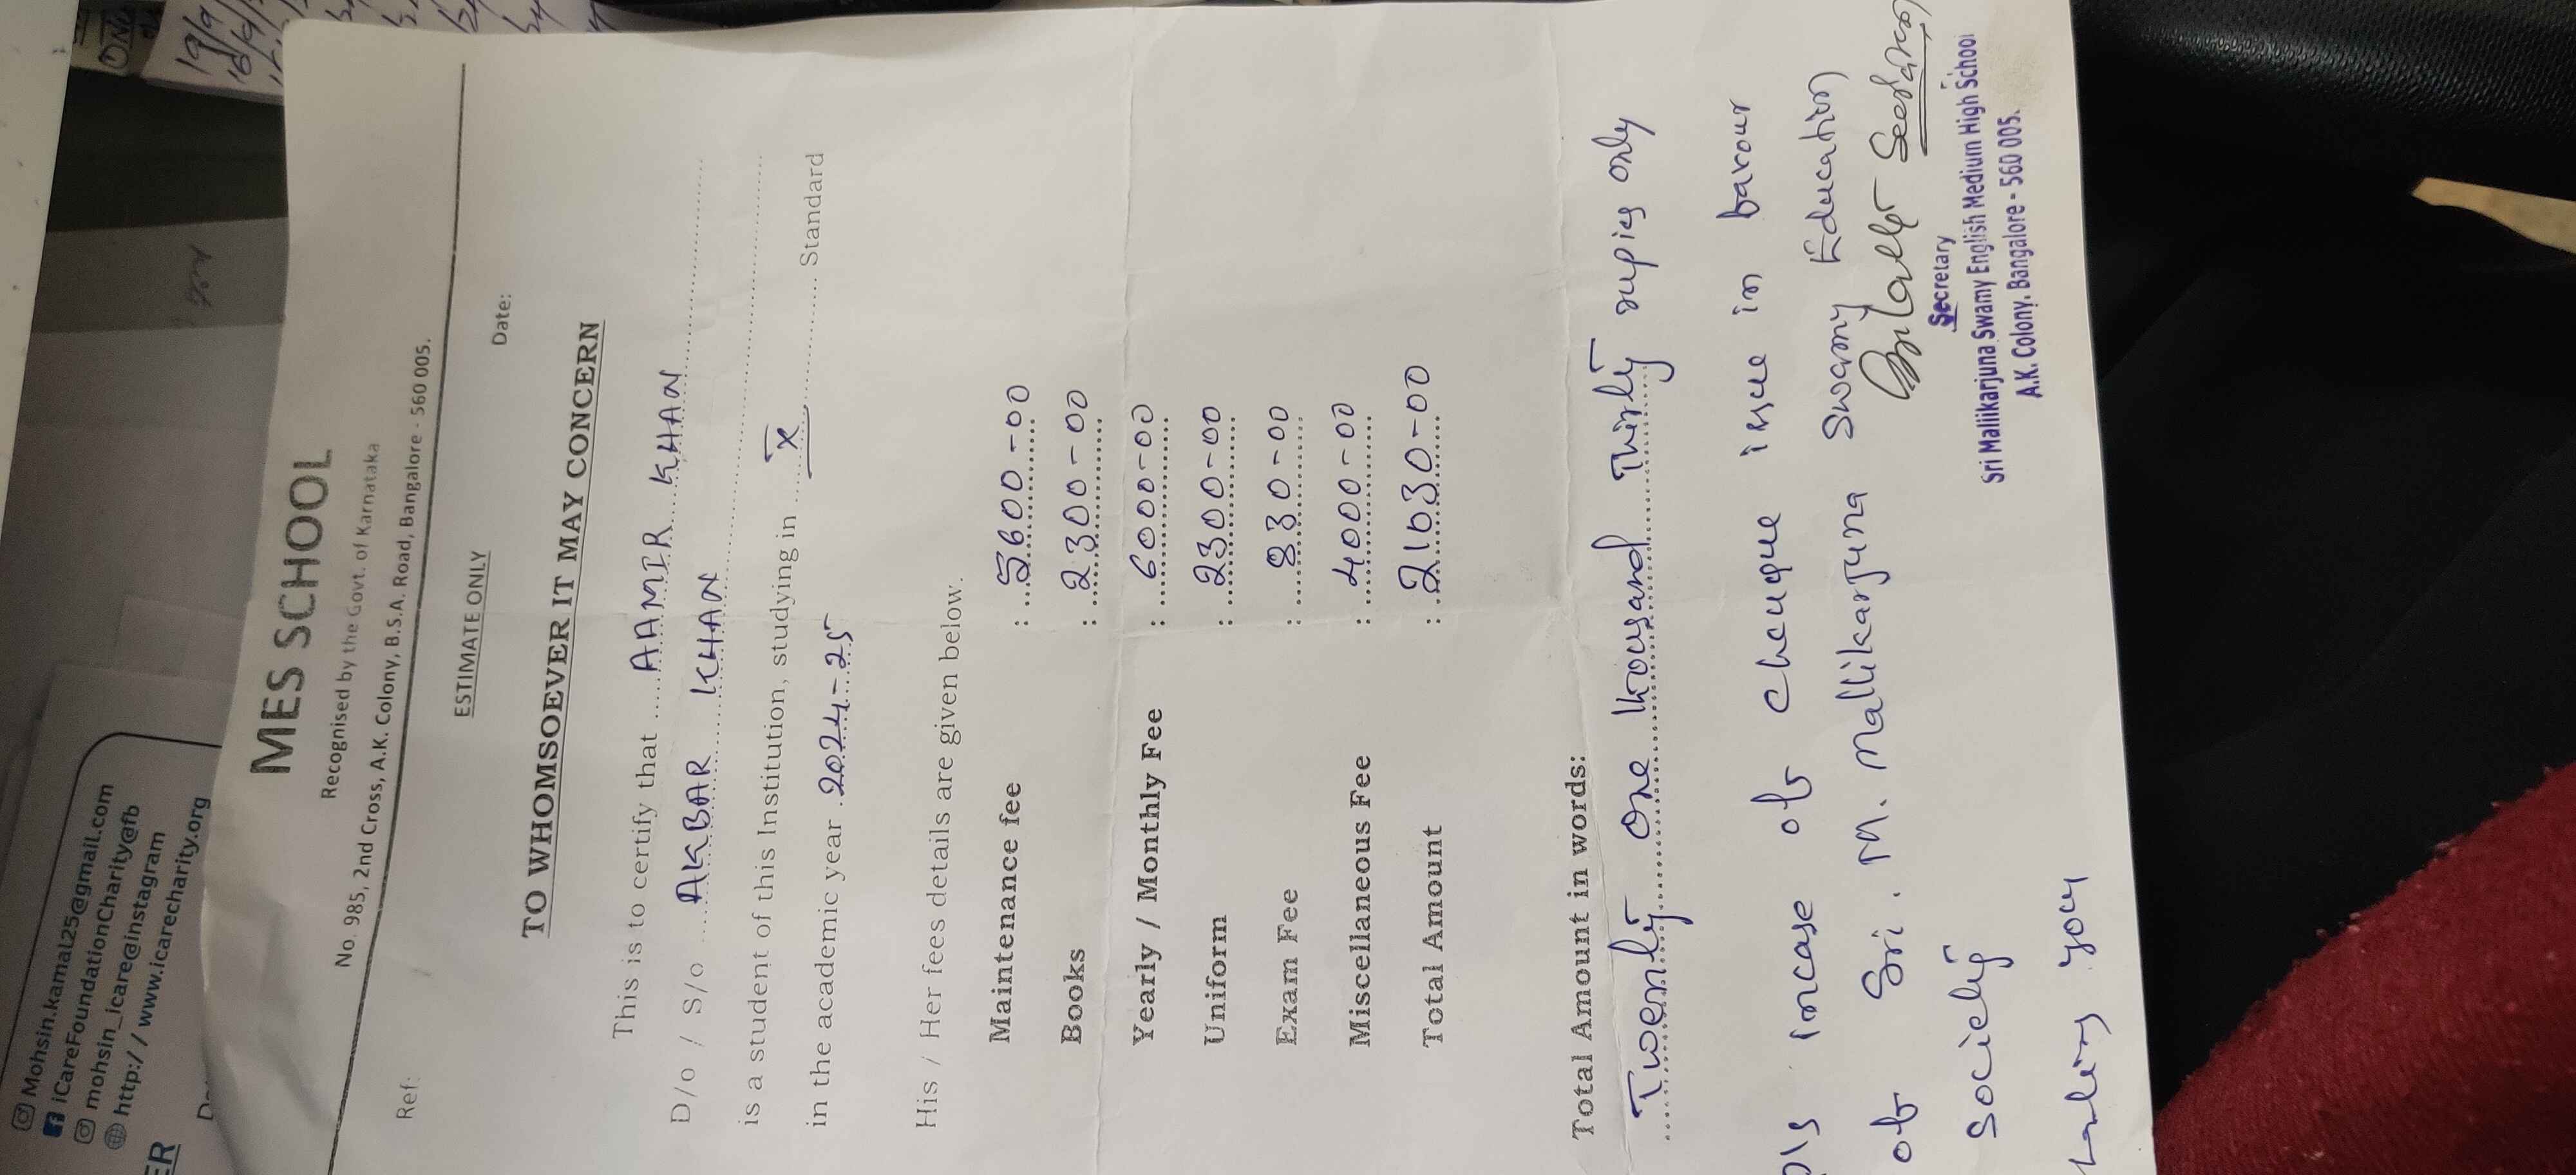 Mohsin.kamal25@gmail.com
iCareFoundationCharity@fb
mohsin_icare@instagram
http://www.icarecharity.org
ER
19/9
MES SCHOOL
Recognised by the Govt. of Karnataka
No. 985, 2nd Cross, A.K. Colony, B.S.A. Road, Bangalore - 560 005.
Ref:
ESTIMATE ONLY
Date:
TO WHOMSOEVER IT MAY CONCERN
This is to certify that AAMIR KHAN
D/o / S/o AKBAR KHAN
is a student of this Institution, studying in X Standard
in the academic year 2024-25
His / Her fees details are given below.
Maintenance fee : 5600-00
Books : 2300-00
Yearly / Monthly Fee : 6000-00
Uniform : 2300-00
Exam Fee : 830-00
Miscellaneous Fee : 4000-00
Total Amount : 21030-00
Total Amount in words:
Twenty one thousand thirty rupies only
Pls incase of cheuque issue in favour
of Sri. M. Mallikarjuna Swamy Education
Society
you
Secretary
Sri Mallikarjuna Swamy English Medium High School
A.K. Colony, Bangalore - 560 005.